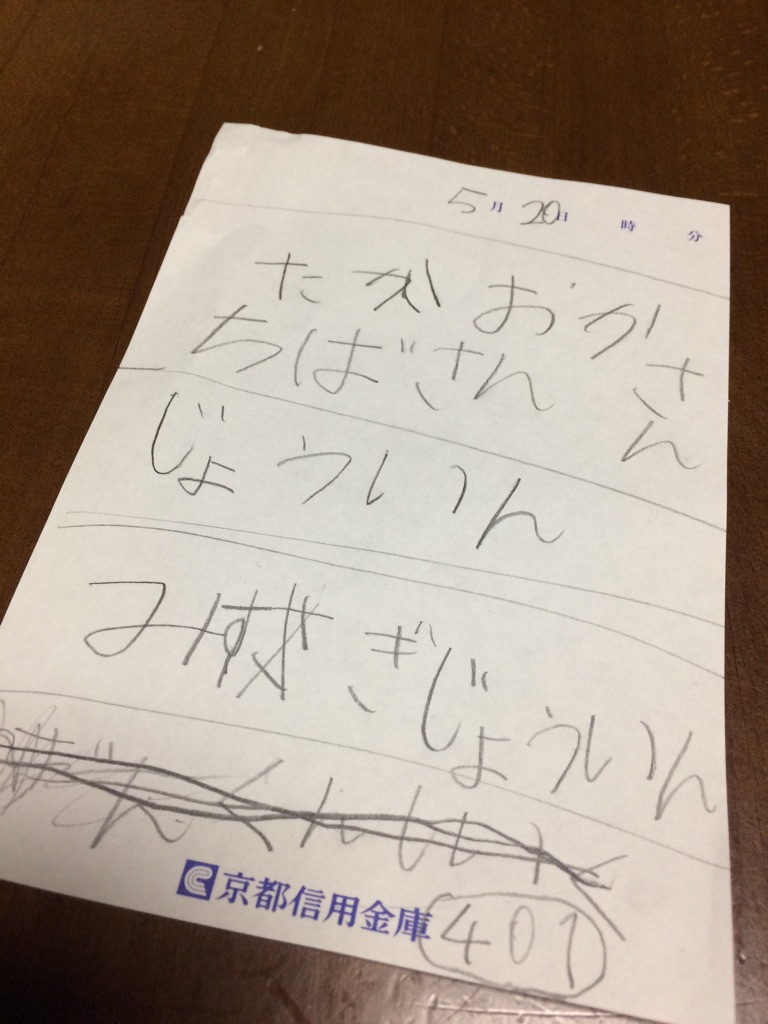 5月20日 時 分
たかおかさん
ちばさん
じょういん
みすぎじょういん
京都信用金庫
401